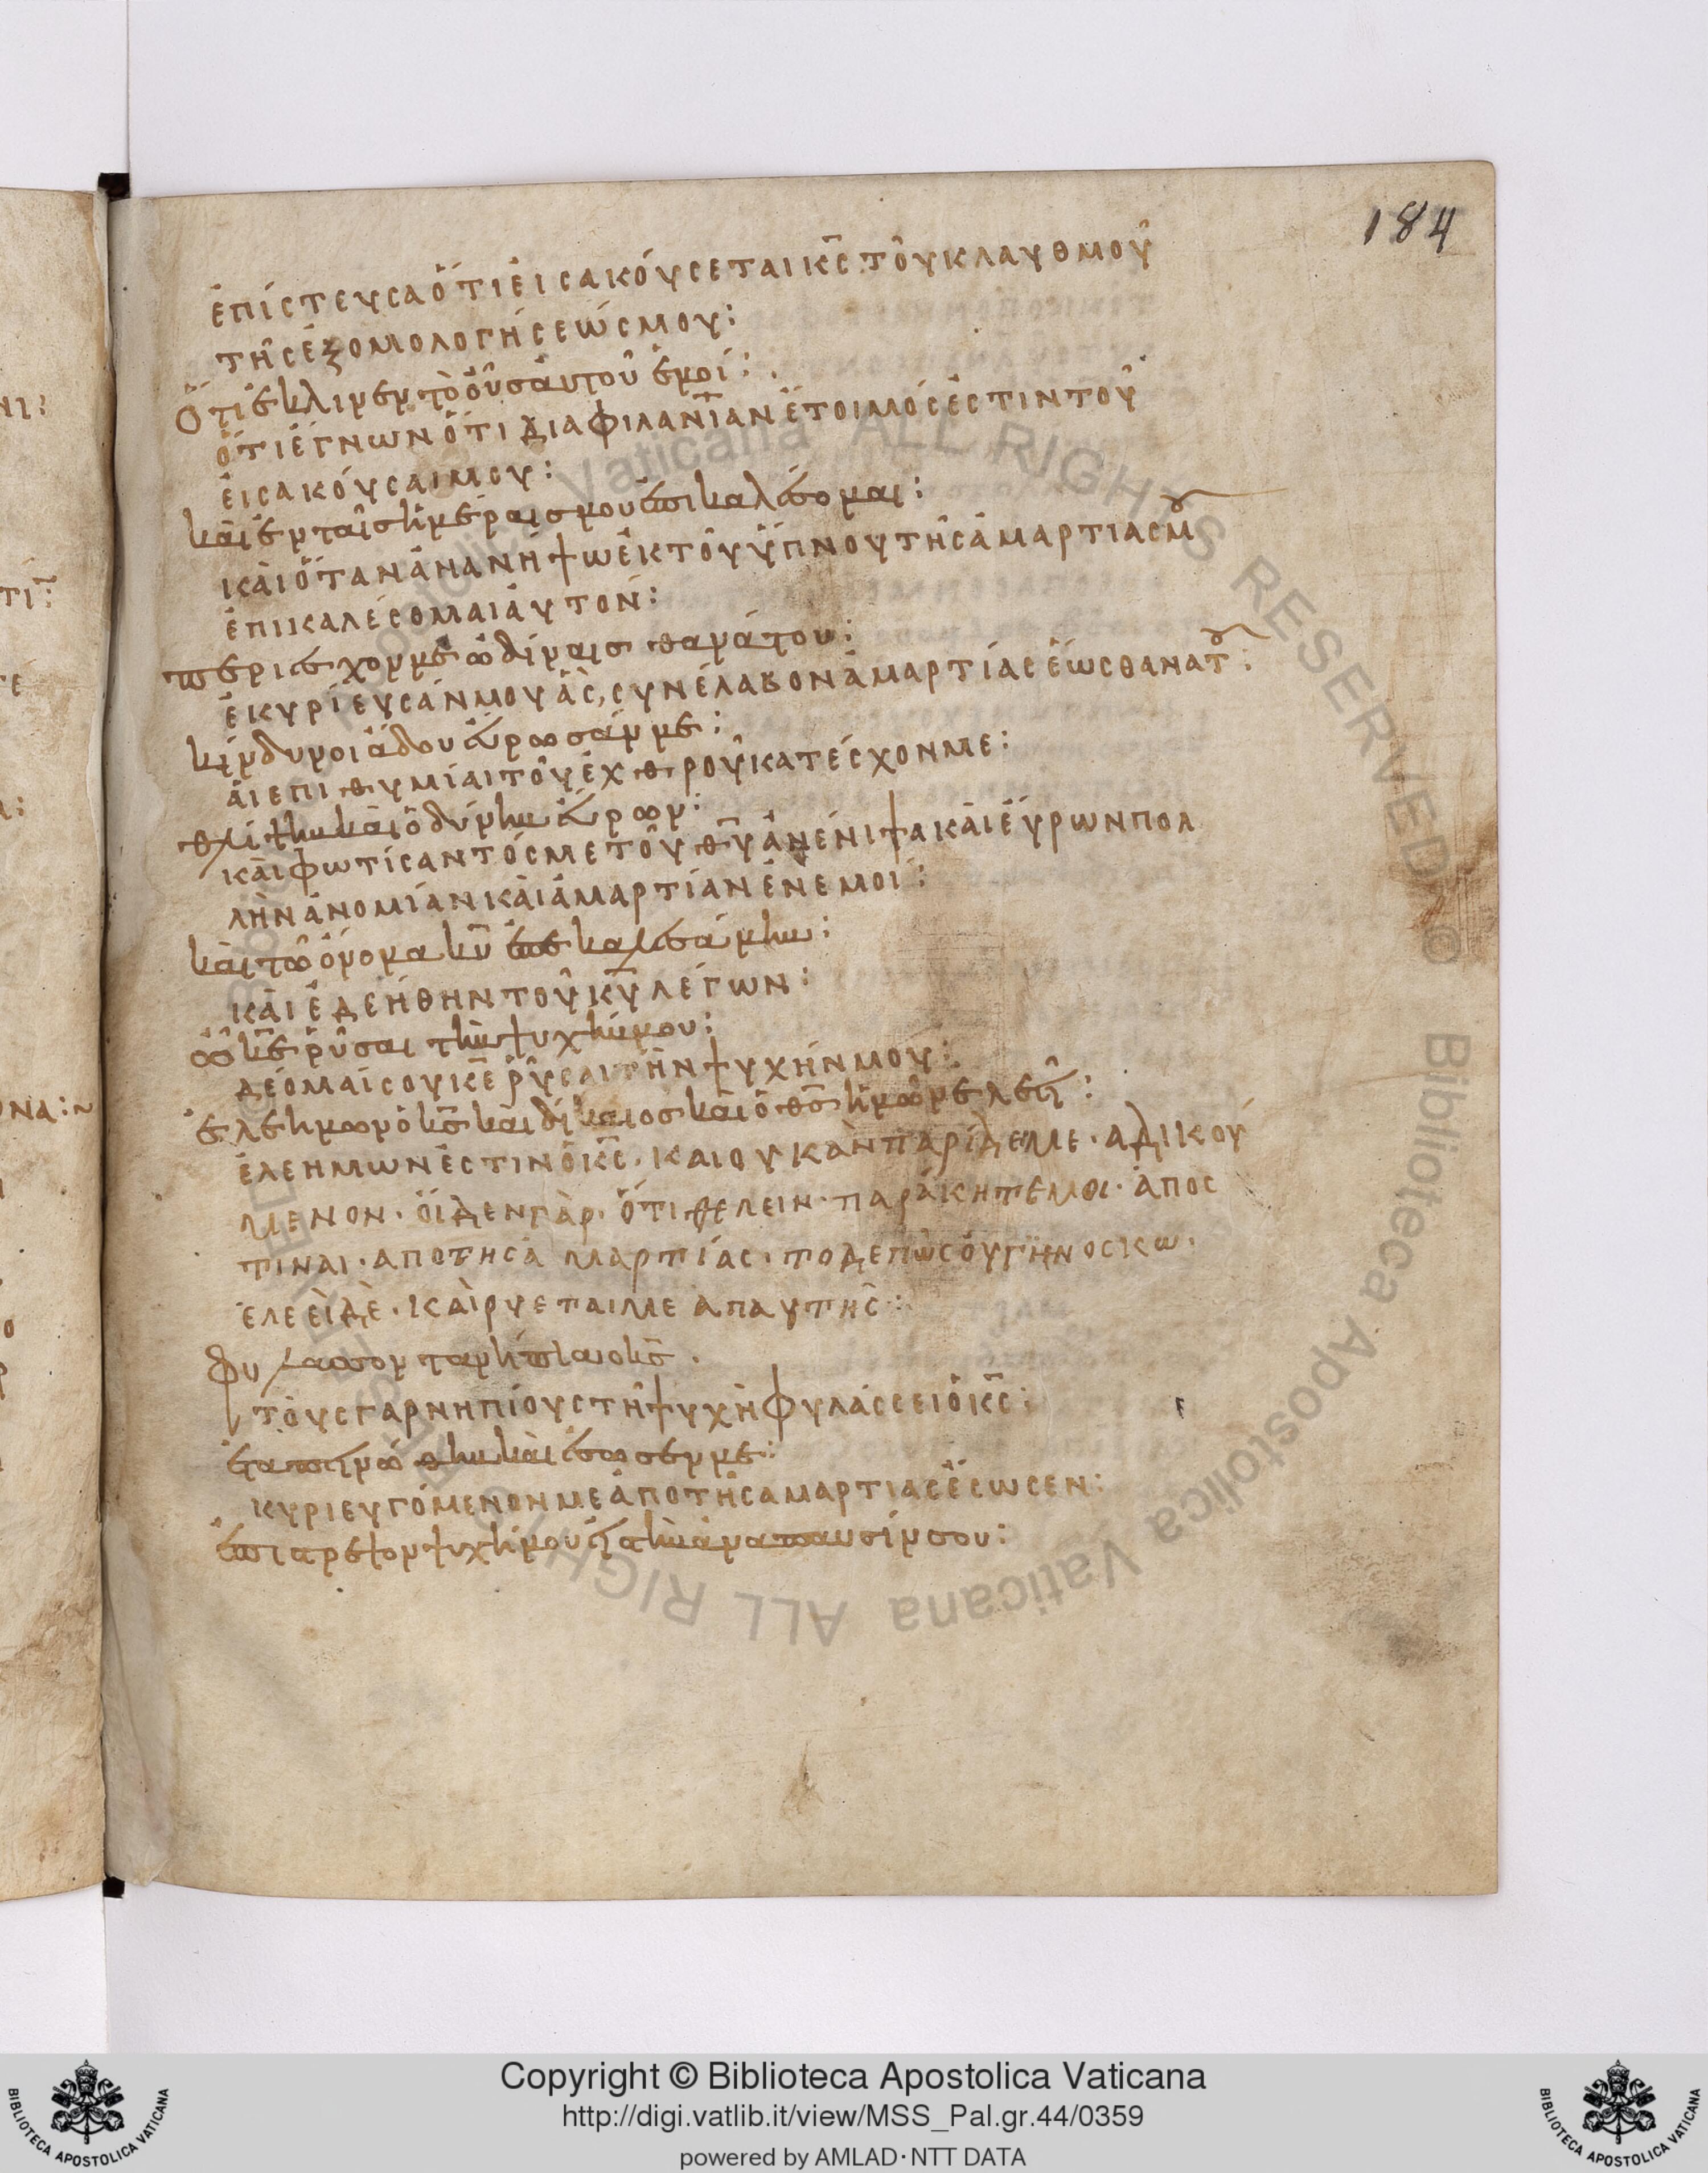 184
ἐπίστευσα ὅτι εἰσακούσεται κ̅ς̅ τοῦ κλαυθμοῦ
τῆς ἐξομολογήσεώς μου:
Ὅτι ἔκλινεν τὸ οὖς αὐτοῦ ἐμοί:
ὅτι ἔγνων ὅτι διὰ φιλαν̅ι̅αν ἕτοιμός ἐστιν τοῦ
εἰσακούσαι μου:
καὶ ἐν ταῖς ἡμέραις μου ἐπικαλέσομαι:
καὶ ὅταν ἀνανήψω ἐκ τοῦ ὕπνου τῆς ἁμαρτίας μου
ἐπικαλέσομαι αὐτόν:
περιέσχον με ὠδίναις θανάτου:
ἐκυρίευσάν μου ἃς, συνέλαβον ἁμαρτίας ἕως θανάτου:
κίνδυνοι ᾅδου εὕρωσάν με:
αἱ ἐπιθυμίαι τοῦ ἐχθροῦ κατέσχον με:
θλίψην καὶ ὀδύνην εὗρων:
καὶ φωτίσαντός με τοῦ θ̅υ̅ ἀνένιψα καὶ εὗρων πολ
λὴν ἀνομίαν καὶ ἁμαρτίαν ἐν ἐμοί:
καὶ τὼ ὄνομα κ̅υ̅ ἐπεκαλεσάμην:
καὶ ἐδεήθην τοῦ κ̅υ̅ λέγων:
ὦ κ̅ε̅ ῥῦσαι τὴν ψυχήν μου:
δέομαί σου κ̅ε̅ ῥῦσαι τὴν ψυχήν μου:
ἐλεήμων ὁ κ̅ς̅ καὶ δίκαιος καὶ ὁ θ̅ς̅ ἡμῶν ἐλεεῖ:
ἐλεήμων ἐστὶν ὁ κ̅ς̅. και ουκ ἂν παρίδε με. αδικού
μενον. οἶδεν γὰρ. ὅτι θέλειν. παράκητέ μοι. ἀποσ
τιναι. απο της ἁμαρτίας. το δε πῶς οὐ γηνοσκω.
ἐλεεὶ δὲ. καὶ ρύεται με ἀπ αυτῆς:
φυλάσσον τα νήπια ο κ̅ς̅.
τοὺς γαρ νηπίους τῆ ψυχῆ φυλάσσει ὁ κ̅ς̅:
ἐταπεινώθην καὶ ἔσωσεν με:
κυριευγόμενον με ἀπὸ τῆς αμαρτίας ἔσωσεν:
ἐπιστρεψον ψυχή μου εἰς τὴν ἀνάπαυσίν σου:
Copyright © Biblioteca Apostolica Vaticana
http://digi.vatlib.it/view/MSS_Pal.gr.44/0359
powered by AMLAD·NTT DATA
BIBLIOTECA APOSTOLICA VATICANA
BIBLIOTECA APOSTOLICA VATICANA